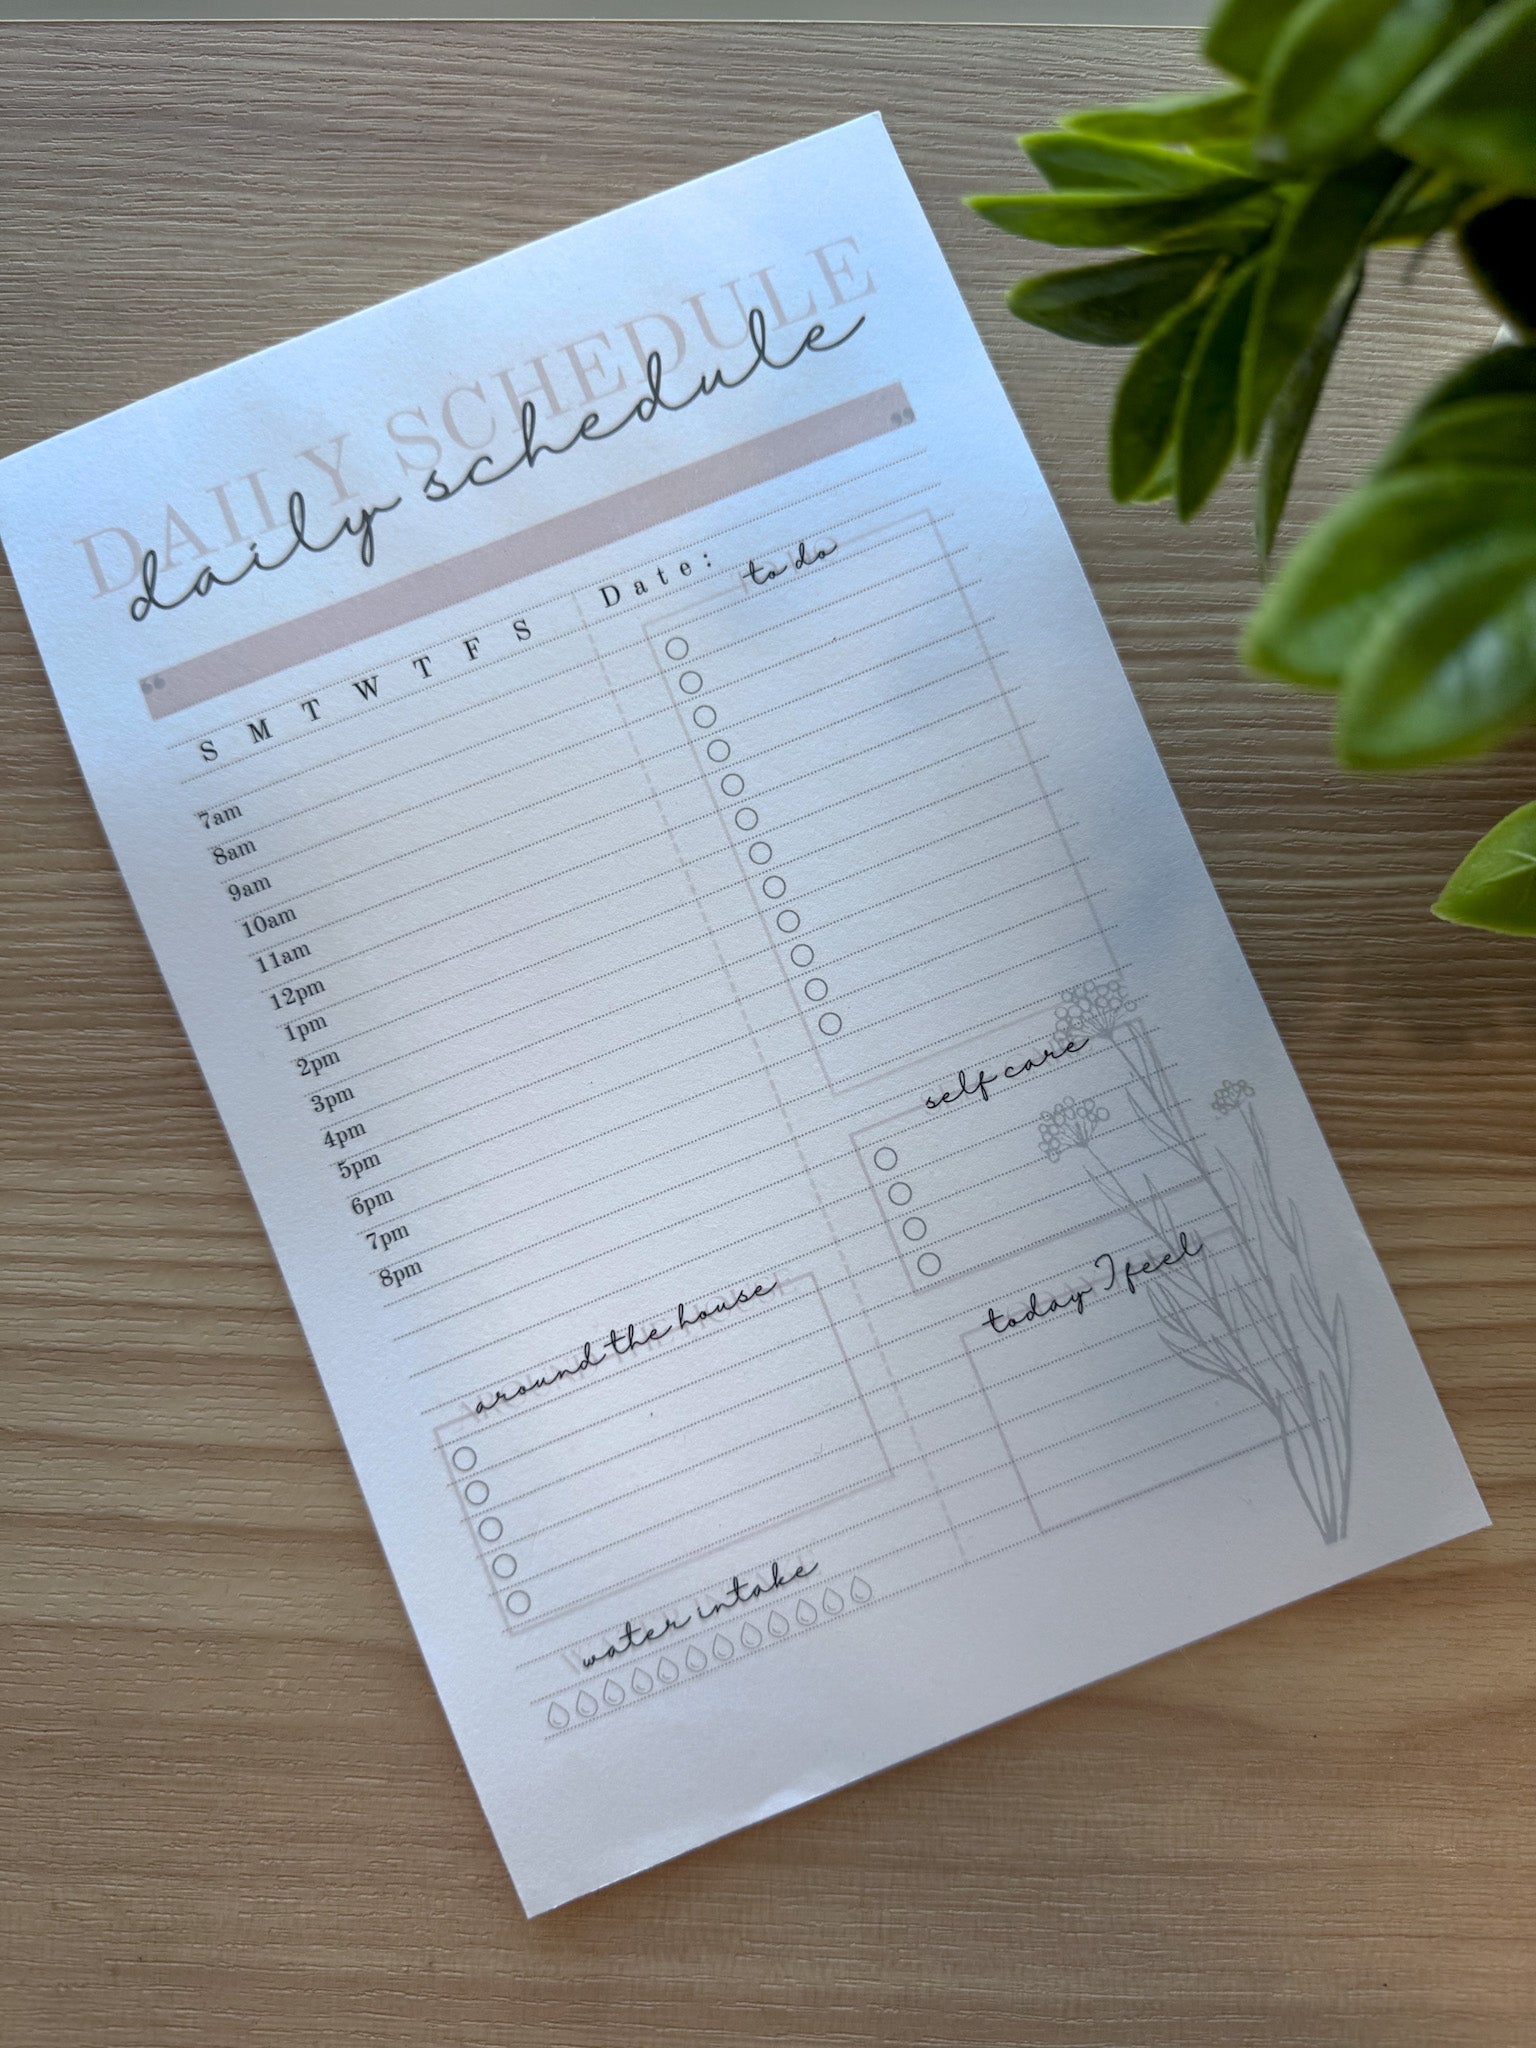 DAILY SCHEDULE
daily schedule
“ ”
S M T W T F S
Date:
7am
8am
9am
10am
11am
12pm
1pm
2pm
3pm
4pm
5pm
6pm
7pm
8pm
to do
self care
today I feel
around the house
water intake